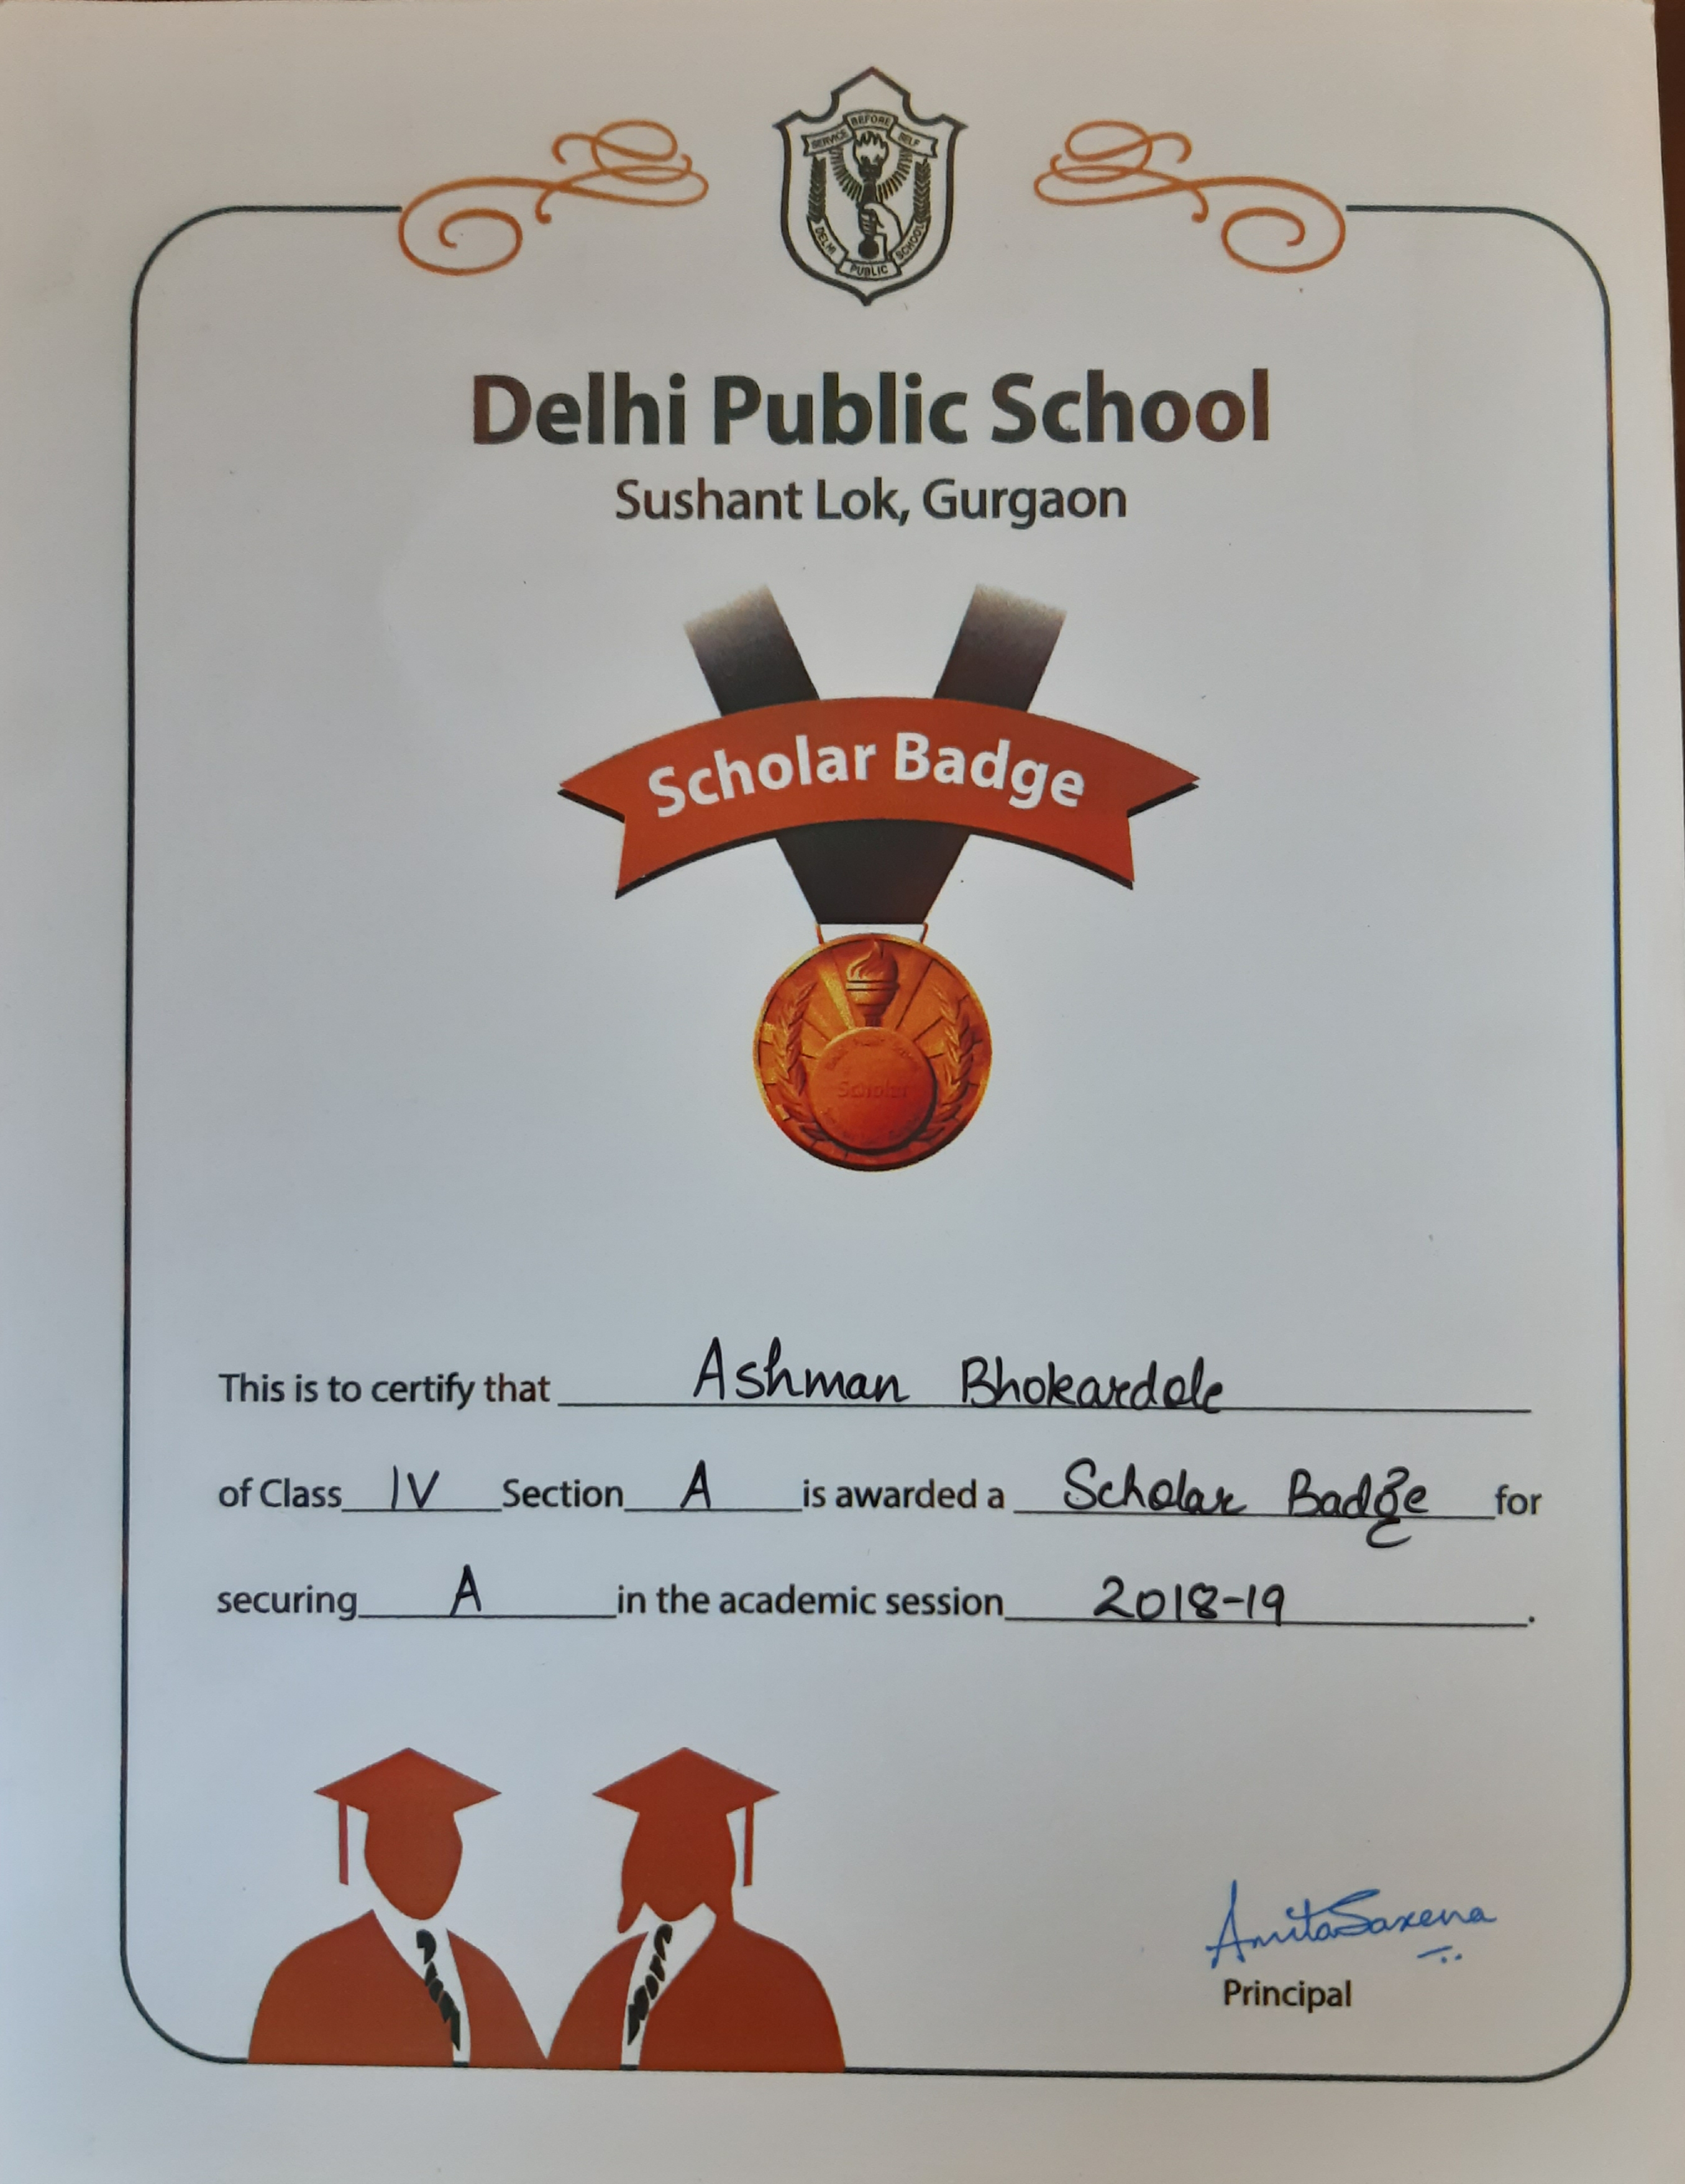 SERVICE BEFORE SELF
DELHI PUBLIC SCHOOL
Delhi Public School
Sushant Lok, Gurgaon
Scholar Badge
Scholar
This is to certify that Ashman Bhokardole
of Class IV Section A is awarded a Scholar Badge for
securing A in the academic session 2018-19.
AmitaSaxena
Principal